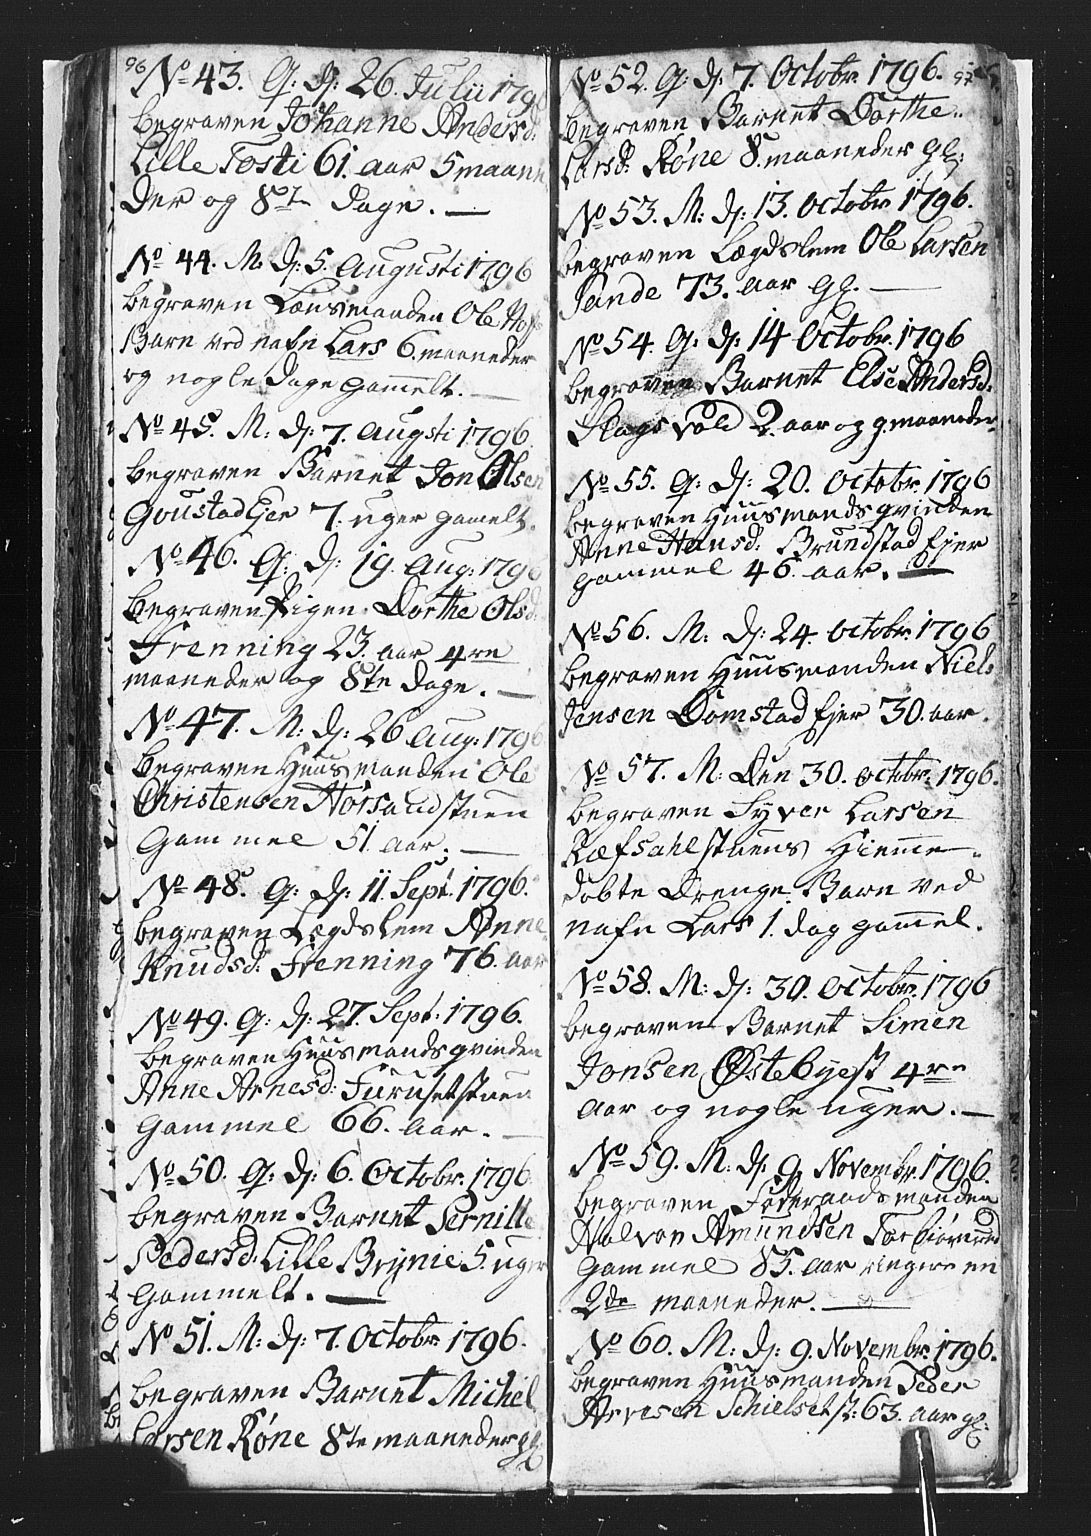 96
No 43. Q: d: 26. Julii 1796
begraven Johanne Andersd:
Lille Tosti 61. aar 5 maane
der og 8te Dage. —
No 44. M: d: 5. Augusti 1796
begraven Lænsmanden Ole
Barn ved nafn Lars 6. maaneder
og nogle Dage gammelt. —
No 45. M: d: 7. Augsti 1796
begraven Barnet Jon Olsen
Goustad Ejer 7. uger gamelt.
No 46. Q: d: 19. Aug: 1796
begraven Pigen Dorthe Olsd:
Frenning 23. aar 4re
maaneder og 8te Dage. —
No 47. M: d: 26 Aug: 1796
begraven Huusmanden Ole
Christensen Horsandstuen
gammel 51 aar. —
No 48. Q: d: 11. Sept. 1796.
begraven Lægdslem Anne
Knudsd: Frenning 76. aar
No 49. Q: d: 27. Sept: 1796.
begraven Huusmandsqvinden
Anne Arnesd: Furusetstuen
gammel 66. aar. —
No 50. Q: d: 6. Octobr. 1796
begraven Barnet Pernille
Pedersd: Lille Brynie 5. uger
gammelt. —
No 51. M: d: 7. Octobr. 1796.
begraven Barnet Michel
Larsen Røne 8te maaneder gl:
97
No 52. Q: d: 7. Octobr. 1796.
begraven Barnet Dorthe
Larsd: Røne 8. maaneder gl:
No 53. M: d: 13. Octobr. 1796.
begraven Lægdslem Ole Larsen
Sande 73. aar gl. —
No 54. Q: d: 14 Octobr. 1796
begraven Barnet Else Andersd:
Slagsvold 2. aar og 9. maaneder.
No 55. Q: d: 20. Octobr. 1796
begraven Huusmandsqvinden
Anne Hansd: Brundstad Ejer
gammel 46. aar. —
No 56. M: d: 24. Octobr. 1796
begraven Huusmanden Niels
Jensen Domstad Ejer 30. aar.
No 57. M: Den 30. octobr: 1796.
begraven Syver Larsen
Ræfsahlstuens Hieme-
døbte Drenge Barn ved
nafn Lars 1. dag gamel.
No 58. M: d: 30. Octobr. 1796
begraven Barnet Simen
Jonsen Østebyest 4re
aar og nogle uger. —
No 59. M: d: 9 Novembr. 1796.
begraven Føderaadsmanden
Halvor Amundsen
gammel 85. aar ringere en
2de maaneder. —
No 60. M: d: 9. Novembr. 1796.
begraven Huusmanden Peder
Arnesen Schielset st: 63. aar gl: